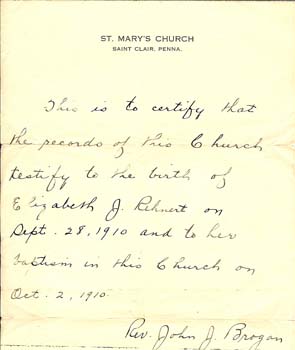 ST. MARY'S CHURCH
SAINT CLAIR, PENNA.
This is to certify that
the records of this Church
testify to the birth of
Elizabeth J. Rehnert on
Sept. 28, 1910 and to her
baptism in this Church on
Oct. 2, 1910
Rev. John J. Brogan